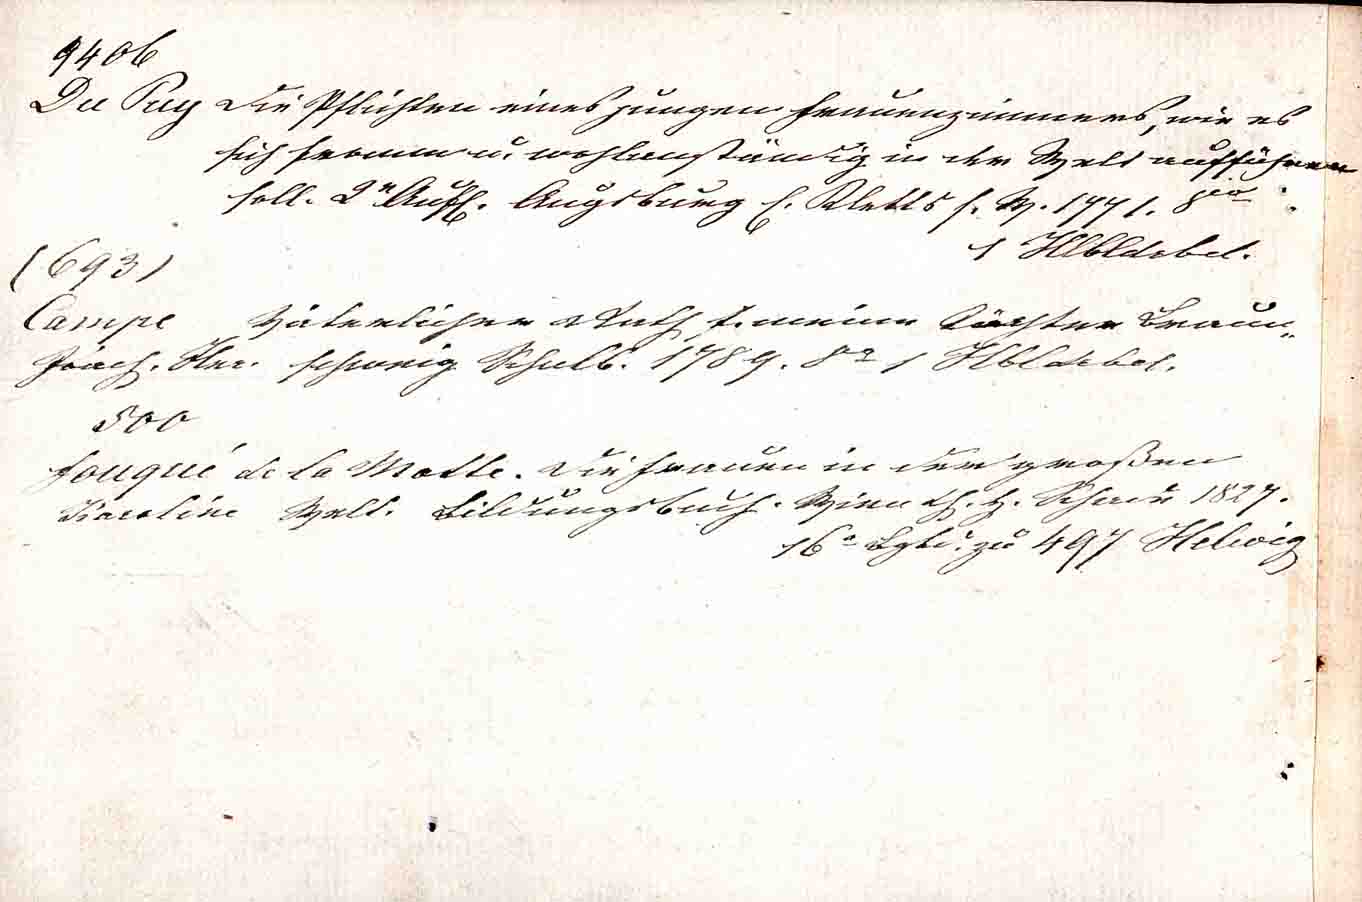 9406
Du Puy Die Pflichten eines jungen Frauenzimmers, wie es
sich fromm u. wohlanständig in der Welt aufführen
soll. 2te Aufl. Augsburg E. Kletts s. W. 1771. 8vo
1 Hlbldrbd.
(693)
Campe Väterlicher Rath f. meine Töchter Braun„
Joach. Hnr. schweig Schulb. 1789. 8o 1 Hlbldrbd.
500
Fouqué de la Motte. Die Frauen in der großen
Karoline Welt. Bildungsbuch. Wien 1827.
16o zu 497 Helwig